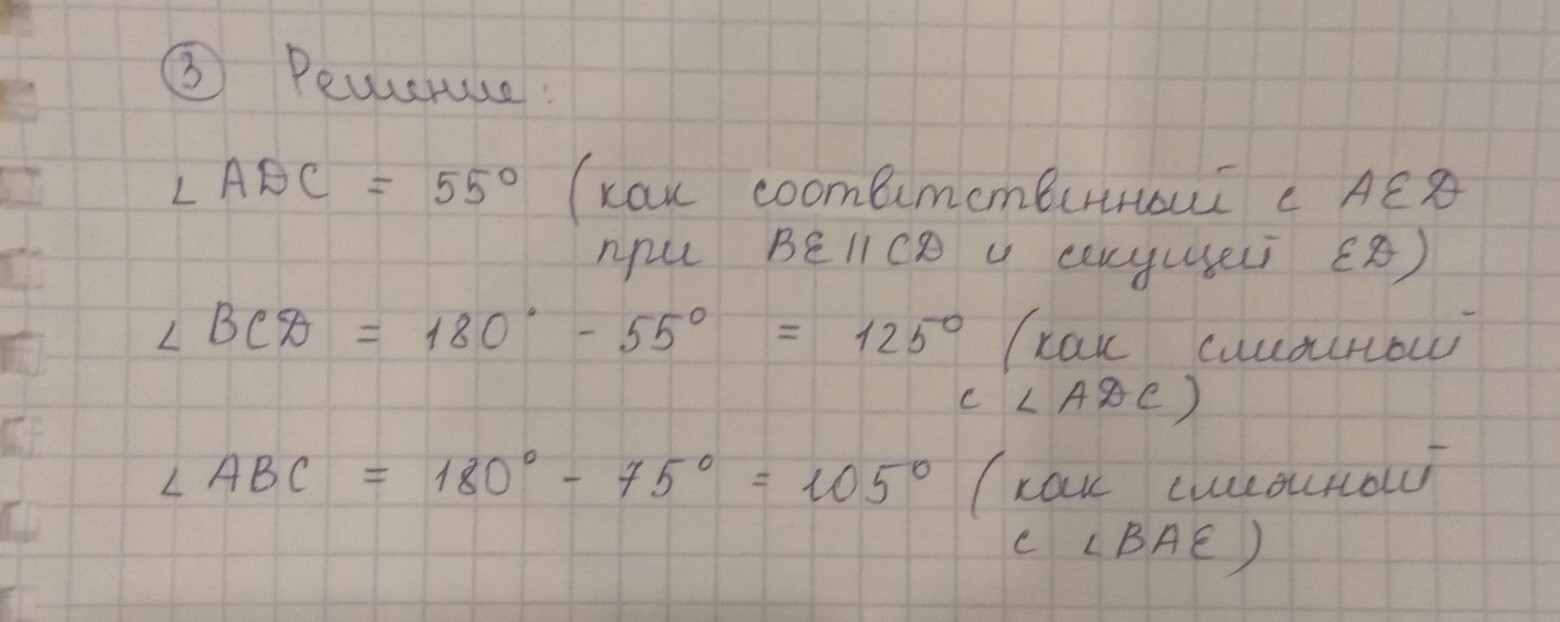 ③ Решение:
∠ ADC = 55° (как соответственный с AED
при BE || CD и секущей ED)
∠ BCD = 180° - 55° = 125° (как смежный
с ∠ ADC)
∠ ABC = 180° - 75° = 105° (как смежный
с ∠ BAE)